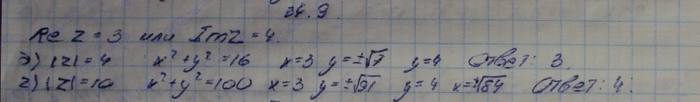 34.9.
Re z = 3 или Im z = 4.
э) |z| = 4 x² + y² = 16 x = 3 y = ±√7 y = 4 Ответ: 3.
г) |z| = 10 x² + y² = 100 x = 3 y = ±√91 y = 4 x = ±√84 Ответ: 4.